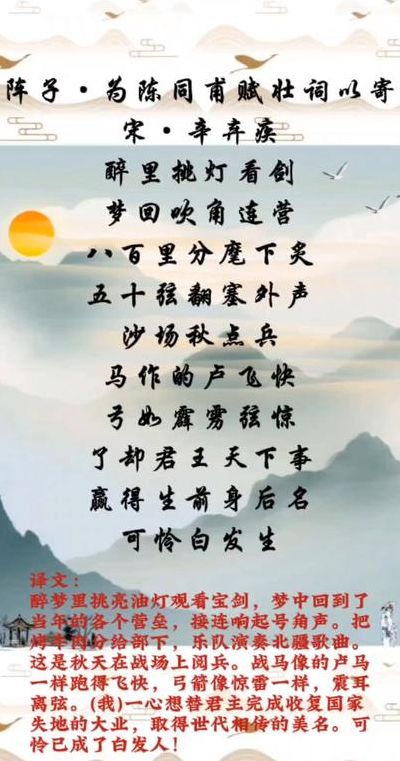 阵子·为陈同甫赋壮词以寄
宋·辛弃疾
醉里挑灯看剑
梦回吹角连营
八百里分麾下炙
五十弦翻塞外声
沙场秋点兵
马作的卢飞快
弓如霹雳弦惊
了却君王天下事
赢得生前身后名
可怜白发生
译文：
醉梦里挑亮油灯观看宝剑，梦中回到了
当年的各个营垒，接连响起号角声。把
烤牛肉分给部下，乐队演奏北疆歌曲。
这是秋天在战场上阅兵。战马像的卢马
一样跑得飞快，弓箭像惊雷一样，震耳
离弦。(我)一心想替君主完成收复国家
失地的大业，取得世代相传的美名。可
怜已成了白发人！